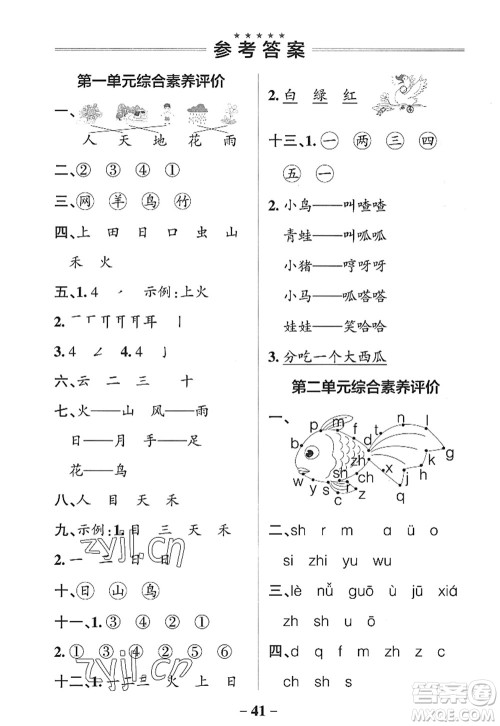 参考答案
第一单元综合素养评价
一、
人 天 地 花 雨
二、② ③ ④ ①
三、网 羊 鸟 竹
四、上 田 日 口 虫 山
禾 火
五、1. 4 示例:上火
3. 4
六、云 二 三 十
七、火——山 风——雨
日——月 手——足
花——鸟
八、人 目 天 禾
九、示例:1. 目 三 天 禾
2. 一 二 三
十、日 山 鸟
十一、1. ③ ④ ② ①
2. ④ ③ ① ② ⑤ ⑥
2. 白 绿 红
十三、1. 一 两 三 四
五 一
2. 小鸟——叫喳喳
青蛙——叫呱呱
小猪——哼呀呀
小马——呱嗒嗒
娃娃——笑哈哈
3. 分吃一个大西瓜
第二单元综合素养评价
一、
b p m f d t n l
zh sh r ch z c s y w
j x k h g q
二、sh r m ɑ üo
si zhi yu wu
三、lè nǚ guō ù jū xiá
zhɑ shu
四、d q f t l h
zyjl.cn
zyjl.cn
41
作业答案
MXQE.COM